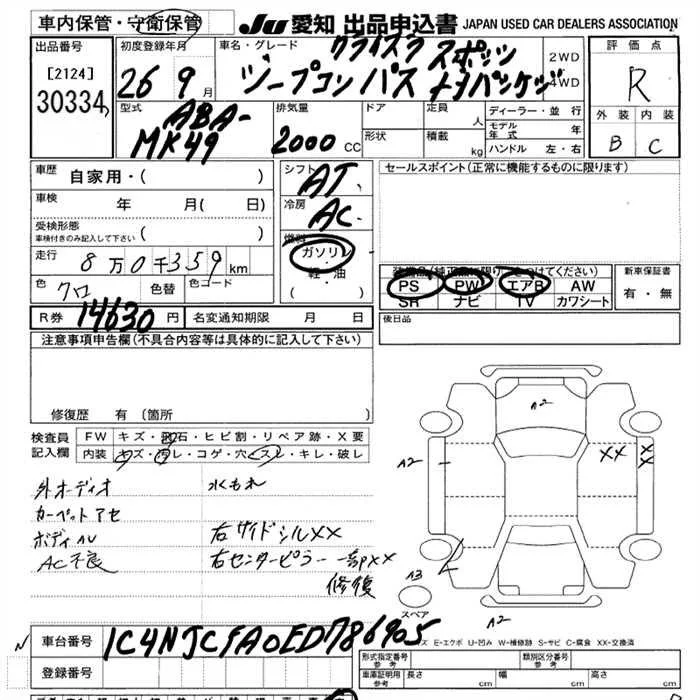 車内保管・守衛保管 JU 愛知 出品申込書 JAPAN USED CAR DEALERS ASSOCIATION
出品番号 初度登録年月 車名・グレード クライスラ スポーツ 2WD 評価点
[2124] 26 9月 ジープコンパス ナビパッケッジ 4WD R
30334
型式 ABA- 排気量 ドア 定員 人 ディーラー・並行 外装 内装
MK49 2000CC 形状 積載 kg モデル年式 年 B C
ハンドル 左・右
車歴 自家用・( ) シフト AT セールスポイント(正常に機能するものに限ります)
車検 年 月( 日) 冷房 AC
受検形態
車検付きのみ記入して下さい ( ) 燃料
走行 8万0千359km ガソリン
軽・油
色 クロ 色替 色コード ( )
装備品(純正品に限り つけてください) 新車保証書
PS PW エアB AW 有・無
SR ナビ TV カワシート
R券 14630円 名変通知期限 月 日 後日品
注意事項申告欄(不具合内容等は具体的に記入して下さい)
修復歴 有(箇所
検査員 FW キズ・飛石・ヒビ割・リペア跡・X要
記入欄 内装 キズ・汚レ・コゲ・穴・スレ・キレ・破レ
外オーディオ 水もれ
カーペットアセ
ボディAU 右サイドシルXX
AC不良 右センターピラー一部PXX
修復
A2
A2
XX
XX
A3
スペア
A2
キズ E-エクボ U-凹み W-補修跡 S-サビ C-腐食 XX-交換済
車台番号 1C4NJCFA0ED786905
登録番号
型式指定番号 参考 類別区分番号 参考
車庫証明用 参考 長さ 幅 高さ